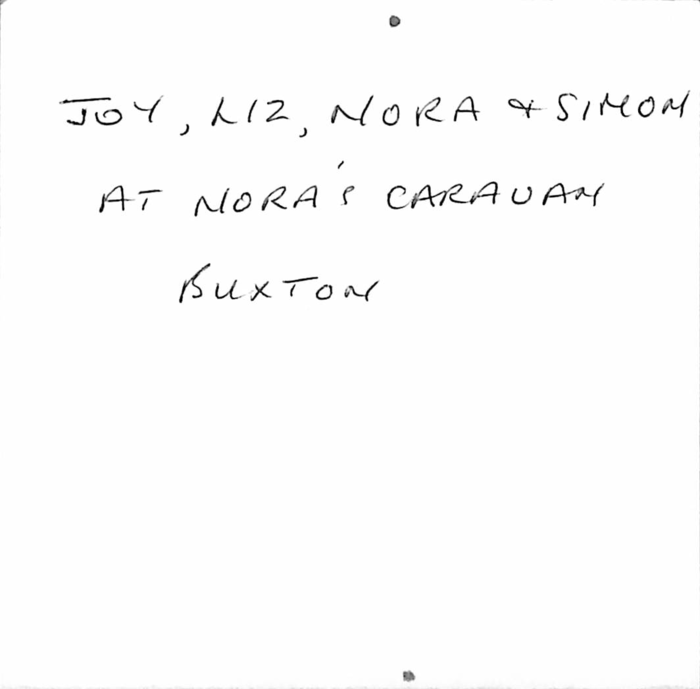 JOY, LIZ, NORA & SIMON
AT NORA'S CARAVAN
BUXTON